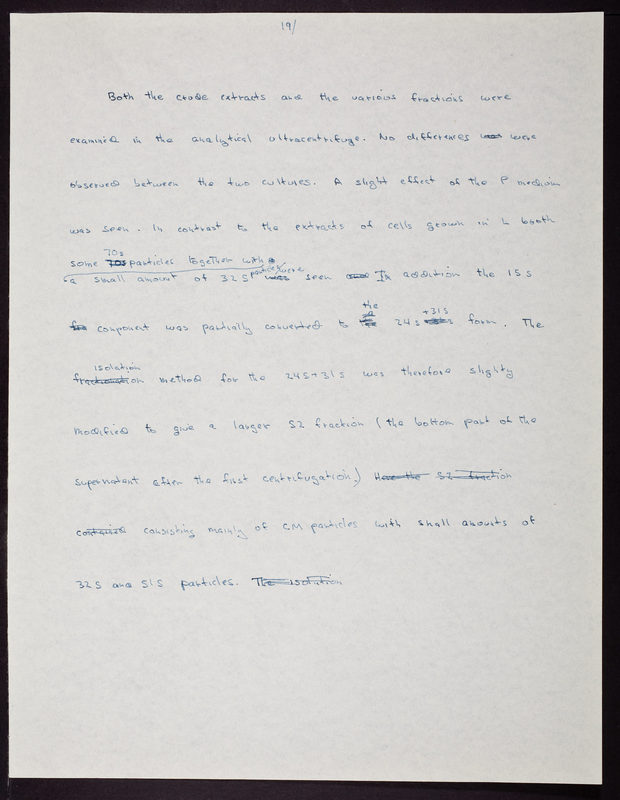 19/
Both the crude extracts and the various fractions were
examined in the analytical ultracentrifuge. No differences was were
observed between the two cultures. A slight effect of the P medium
was seen. In contrast to the extracts of cells grown in L broth
70s
some 70s particles together with a
particles were
a small amount of 32S was seen and In addition the 15s
the
component was partially converted to 24s +31s form. The
isolation
fractionation method for the 24s+31s was therefore slighty
modified to give a larger S2 fraction (the bottom part of the
supernatant after the first centrifugation) Here the S2 fraction
contained consisting mainly of CM particles with small amounts of
32S and 51S particles. The isolation